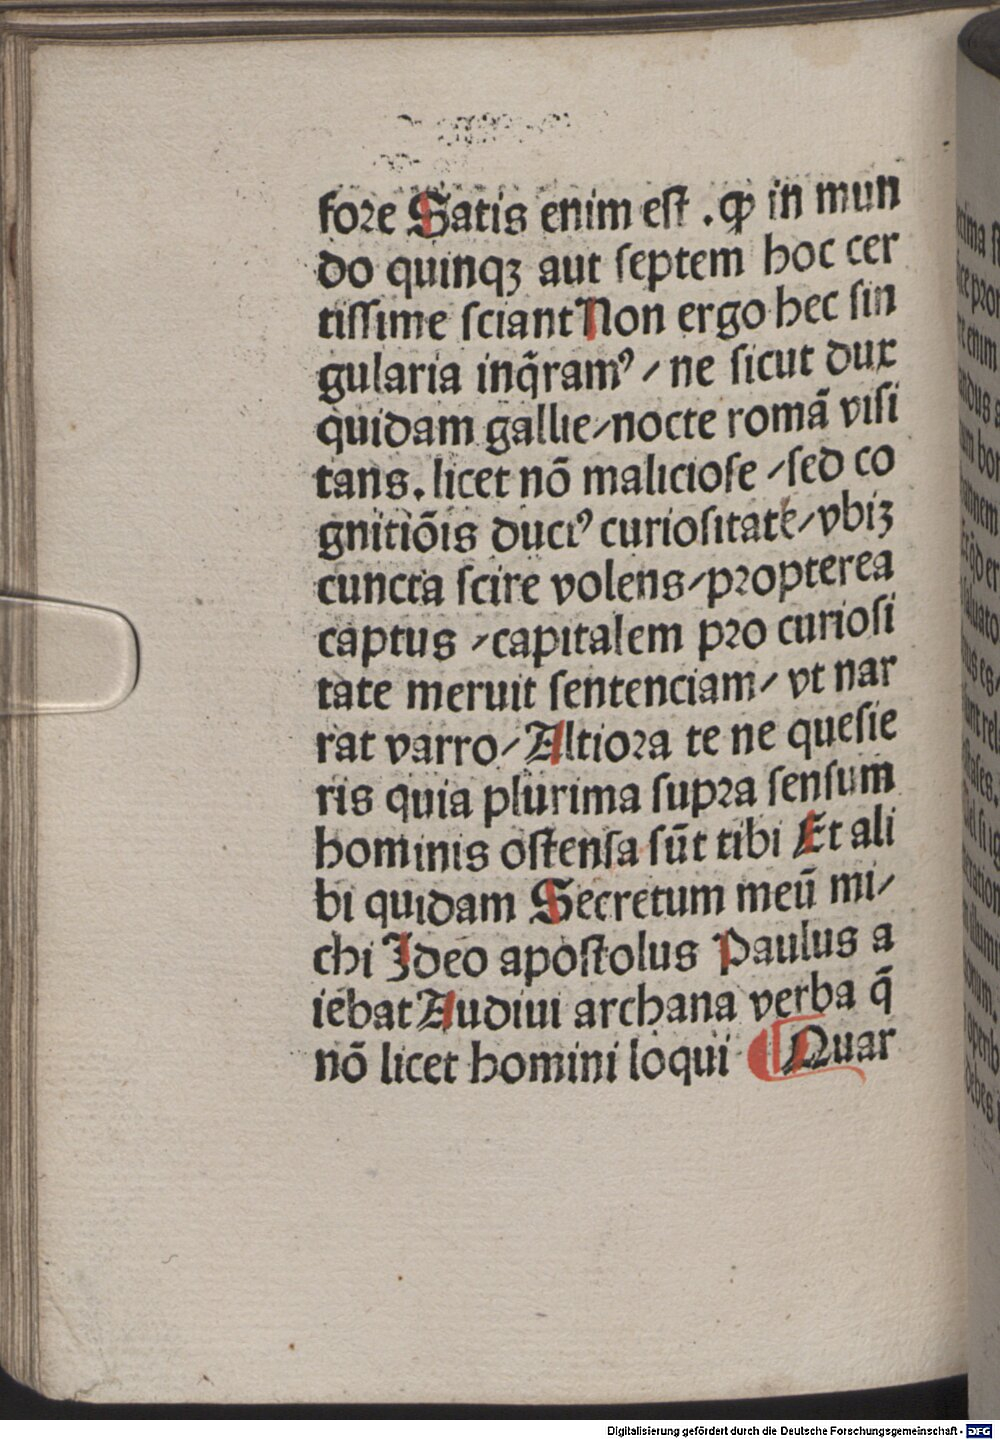 fore Satis enim est .ꝙ in mun
do quinqꝫ aut septem hoc cer
tissime sciant Non ergo hec sin
gularia inq̄ramꝰ / ne sicut dux
quidam gallie/nocte romā visi
tans. licet nō maliciose /sed co
gnitiōis ductꝰ curiositate/vbiꝫ
cuncta scire volens/propterea
captus /capitalem pro curiosi
tate meruit sentenciam/ vt nar
rat varro/ Altiora te ne quesie
ris quia plurima supra sensum
hominis ostensa sūt tibi Et ali
bi quidam Secretum meū mi/
chi Ideo apostolus Paulus a
iebat Audiui archana verba q̄
nō licet homini loqui ¶ Quar
Digitalisierung gefördert durch die Deutsche Forschungsgemeinschaft - DFG